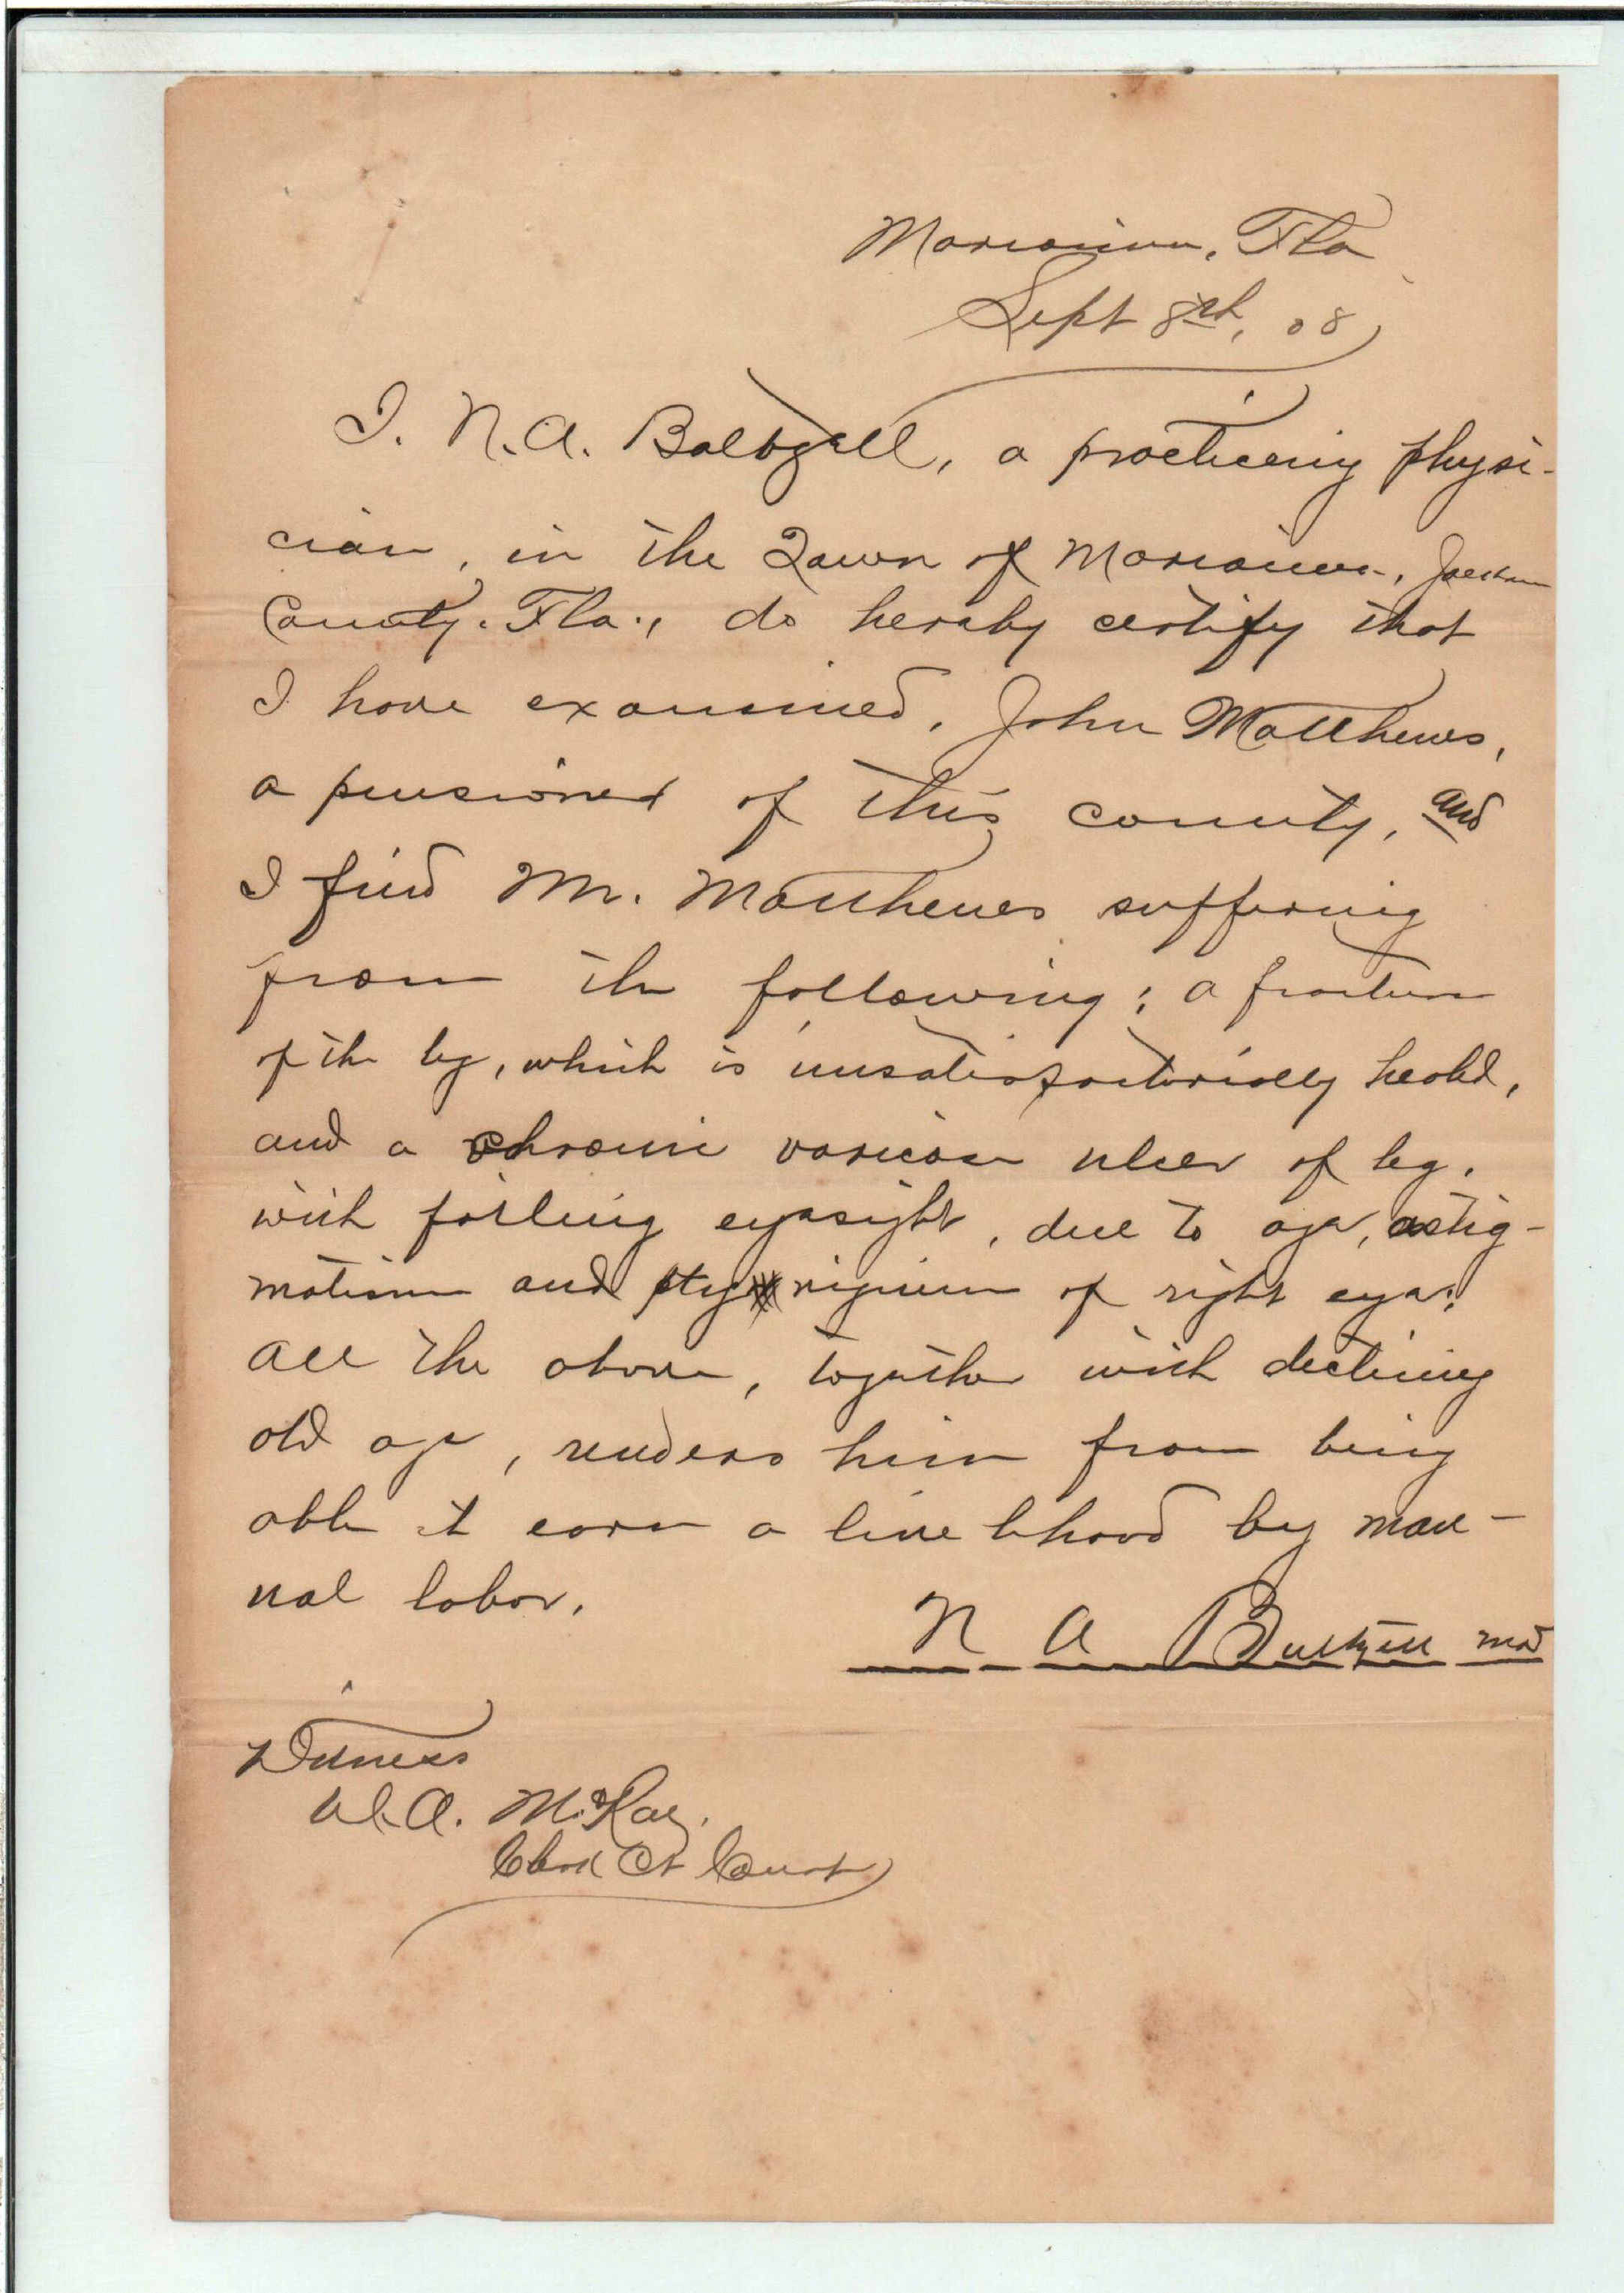 Marianna, Fla
Sept 8th, 08
I. N. A. Baltzell, a practicing physi-
cian, in the Town of Marianna, Jackson
County. Fla., do hereby certify that
I have examined, John Matthews,
a pensioner of this county, and
I find Mr. Matthews suffering
from the following; a fracture
of the leg, which is unsatisfactorially healed,
and a chronic varicose ulcer of leg.
with failing eyesight, due to age, astig-
matism and pterygium of right eye;
all the above, together with declining
old age, renders him from being
able to earn a livelihood by man-
ual labor.
N A Baltzell MD
Witness
W. A. McRae.
Clerk Ct Court